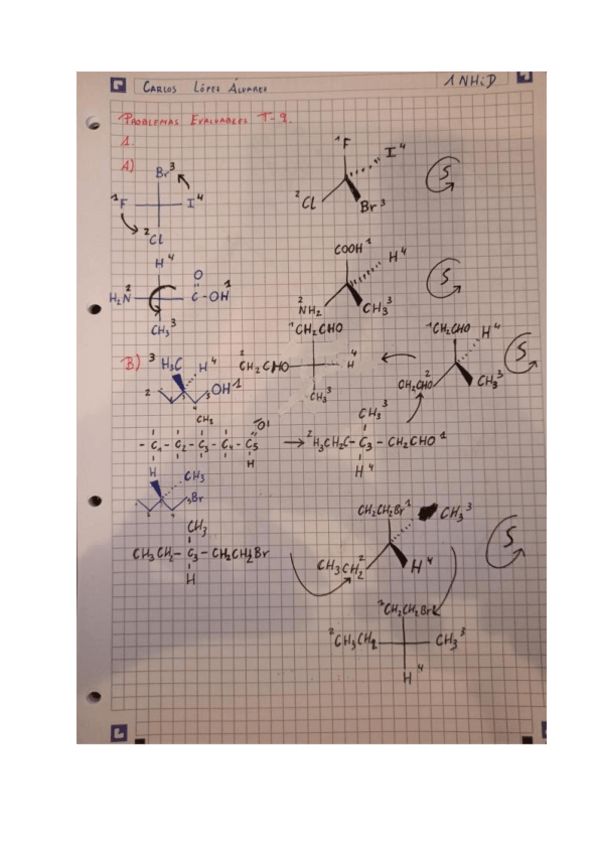 CARLOS LÓPEZ ÁLVAREZ 1NHiD
PROBLEMAS EVALUABLES T-9.
1.
A)
Br³
¹F I⁴
²Cl
¹F
I⁴
²Cl Br³
S
H⁴
O
H₂N² C-OH¹
CH₃³
COOH¹
H⁴
²NH₂ CH₃³
S
B) ³H₃C H⁴
² OH¹
¹CH₂CHO
²CH₂CHO H⁴
CH₃³
¹CH₂CHO H⁴
CH₂CHO² CH₃³
S
CH₃
- C₁ - C₂ - C₃ - C₄ - C₅ O
H
CH₃³
²H₃CH₂C - C₃ - CH₂CHO¹
H⁴
H CH₃
Br
CH₃
CH₃CH₂ - C₃ - CH₂CH₂Br
H
CH₂CH₂Br¹
CH₃³
CH₃CH₂² H⁴
S
¹CH₂CH₂Br
²CH₃CH₂ CH₃³
H⁴